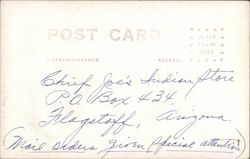 POST CARD
PLACE
STAMP
HERE
CORRESPONDENCE ADDRESS
Chief Joe's Indian Store
P.O. Box 434.
Flagstaff, Arizona.
(Mail orders given special attention)